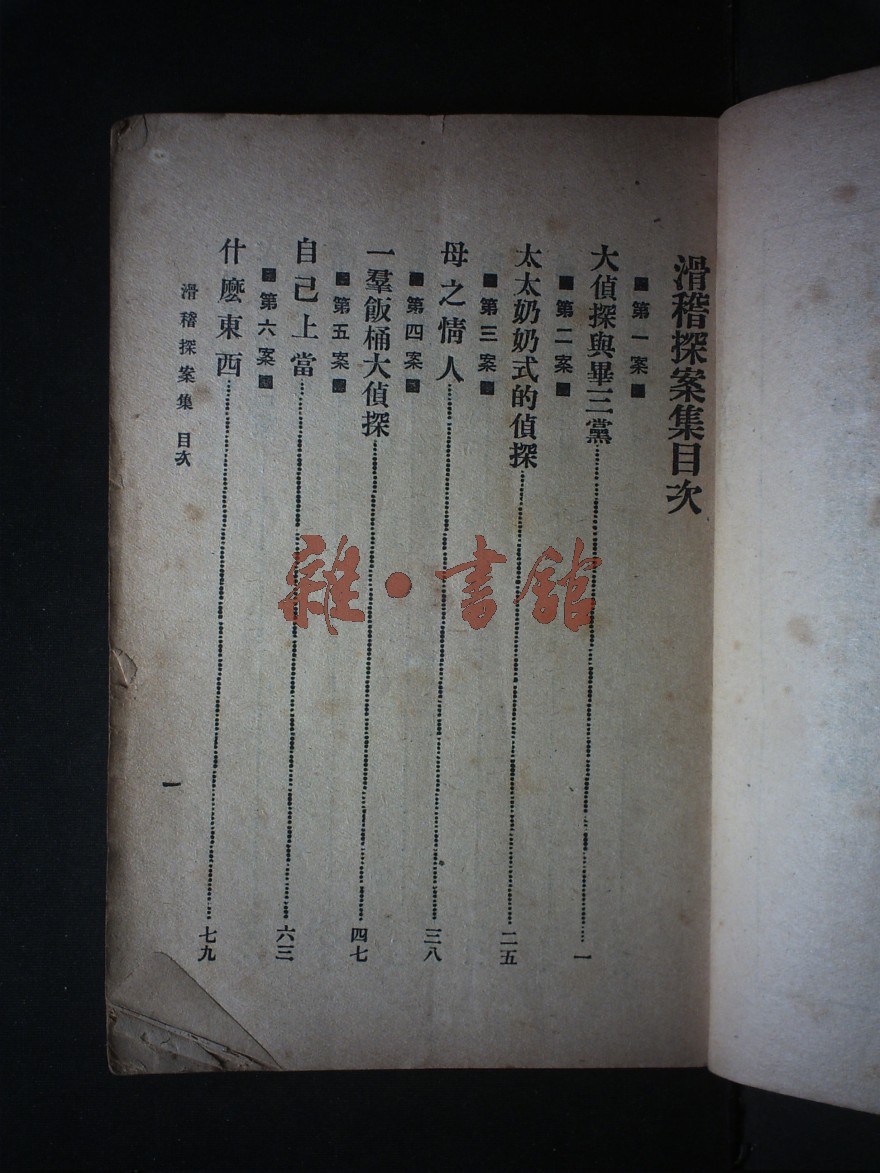 滑稽探案集目次
第一案
大偵探與畢三黨 一
第二案
太太奶奶式的偵探 二五
第三案
母之情人 三八
第四案
一羣飯桶大偵探 四七
第五案
自己上當 六三
第六案
什麼東西 七九
滑稽探案集 目次
一
雜·書館